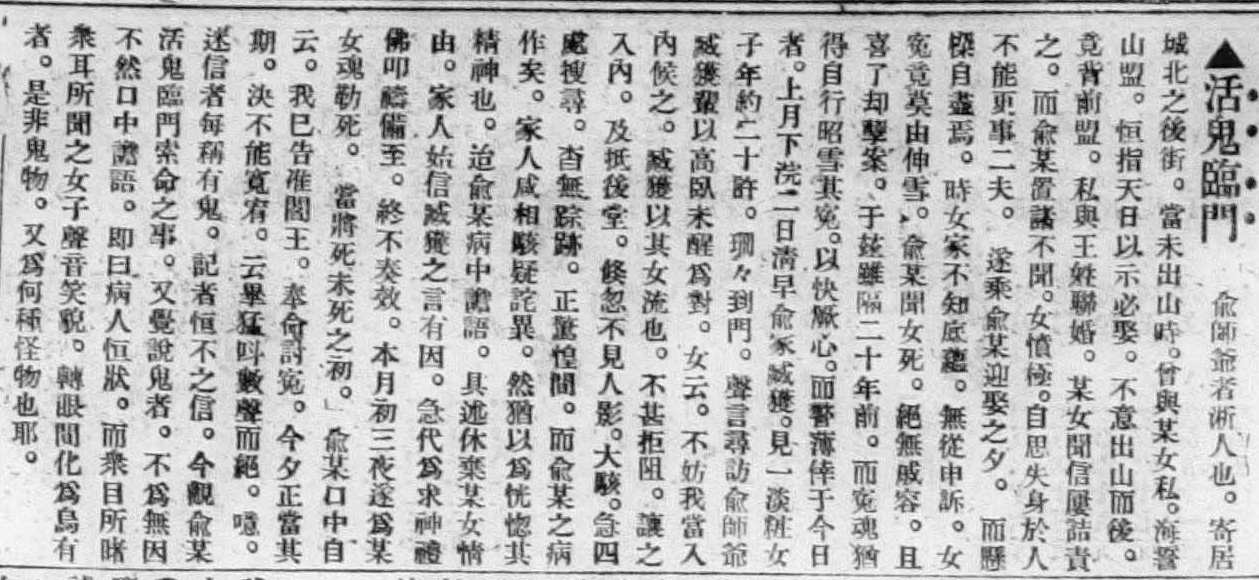 ▲活鬼臨門　俞師爺者淅人也。寄居
城北之後街。當未出山時。曾與某女私。海誓
山盟。恒指天日以示必娶。不意出山而後。
竟背前盟。私與王姓聯婚。某女聞信屢詰責
之。而俞某置諸不聞。女憤極。自思失身於人
不能更事二夫。遂乘俞某迎娶之夕。而懸
樑自盡焉。時女家不知底蘊。無從申訴。女
寃竟莫由伸雪。俞某聞女死。絕無戚容。且
喜了却孽案。于茲雖隔二十年前。而寃魂猶
得自行昭雪其寃。以快厥心。而警薄倖于今日
者。上月下浣二日清早俞家臧獲。見一淡粧女
子年約二十許。珊々到門。聲言尋訪俞師爺
臧獲輩以高臥未醒爲對。女云。不妨我當入
內候之。臧獲以其女流也。不甚拒阻。讓之
入內。及抵後堂。倏忽不見人影。大駭。急四
處搜尋。杳無踪跡。正驚惶間。而俞某之病
作矣。家人咸相駭疑詫異。然猶以爲恍惚其
精神也。迨俞某病中譫語。具述休棄某女情
由。家人始信臧獲之言有因。急代爲求神禮
佛叩禱備至。終不奏效。本月初三夜遂爲某
女魂勒死。　當將死未死之初。」俞某口中自
云。我已告准閻王。奉命討寃。今夕正當其
期。決不能寬宥。云畢猛叫數聲而絕。噫。
迷信者每稱有鬼。記者恒不之信。今觀俞某
活鬼臨門索命之事。又覺說鬼者。不爲無因
不然口中譫語。即曰病人恒狀。而衆目所睹
衆耳所聞之女子聲音笑貌。轉眼間化爲烏有
者。是非鬼物。又爲何種怪物也耶。